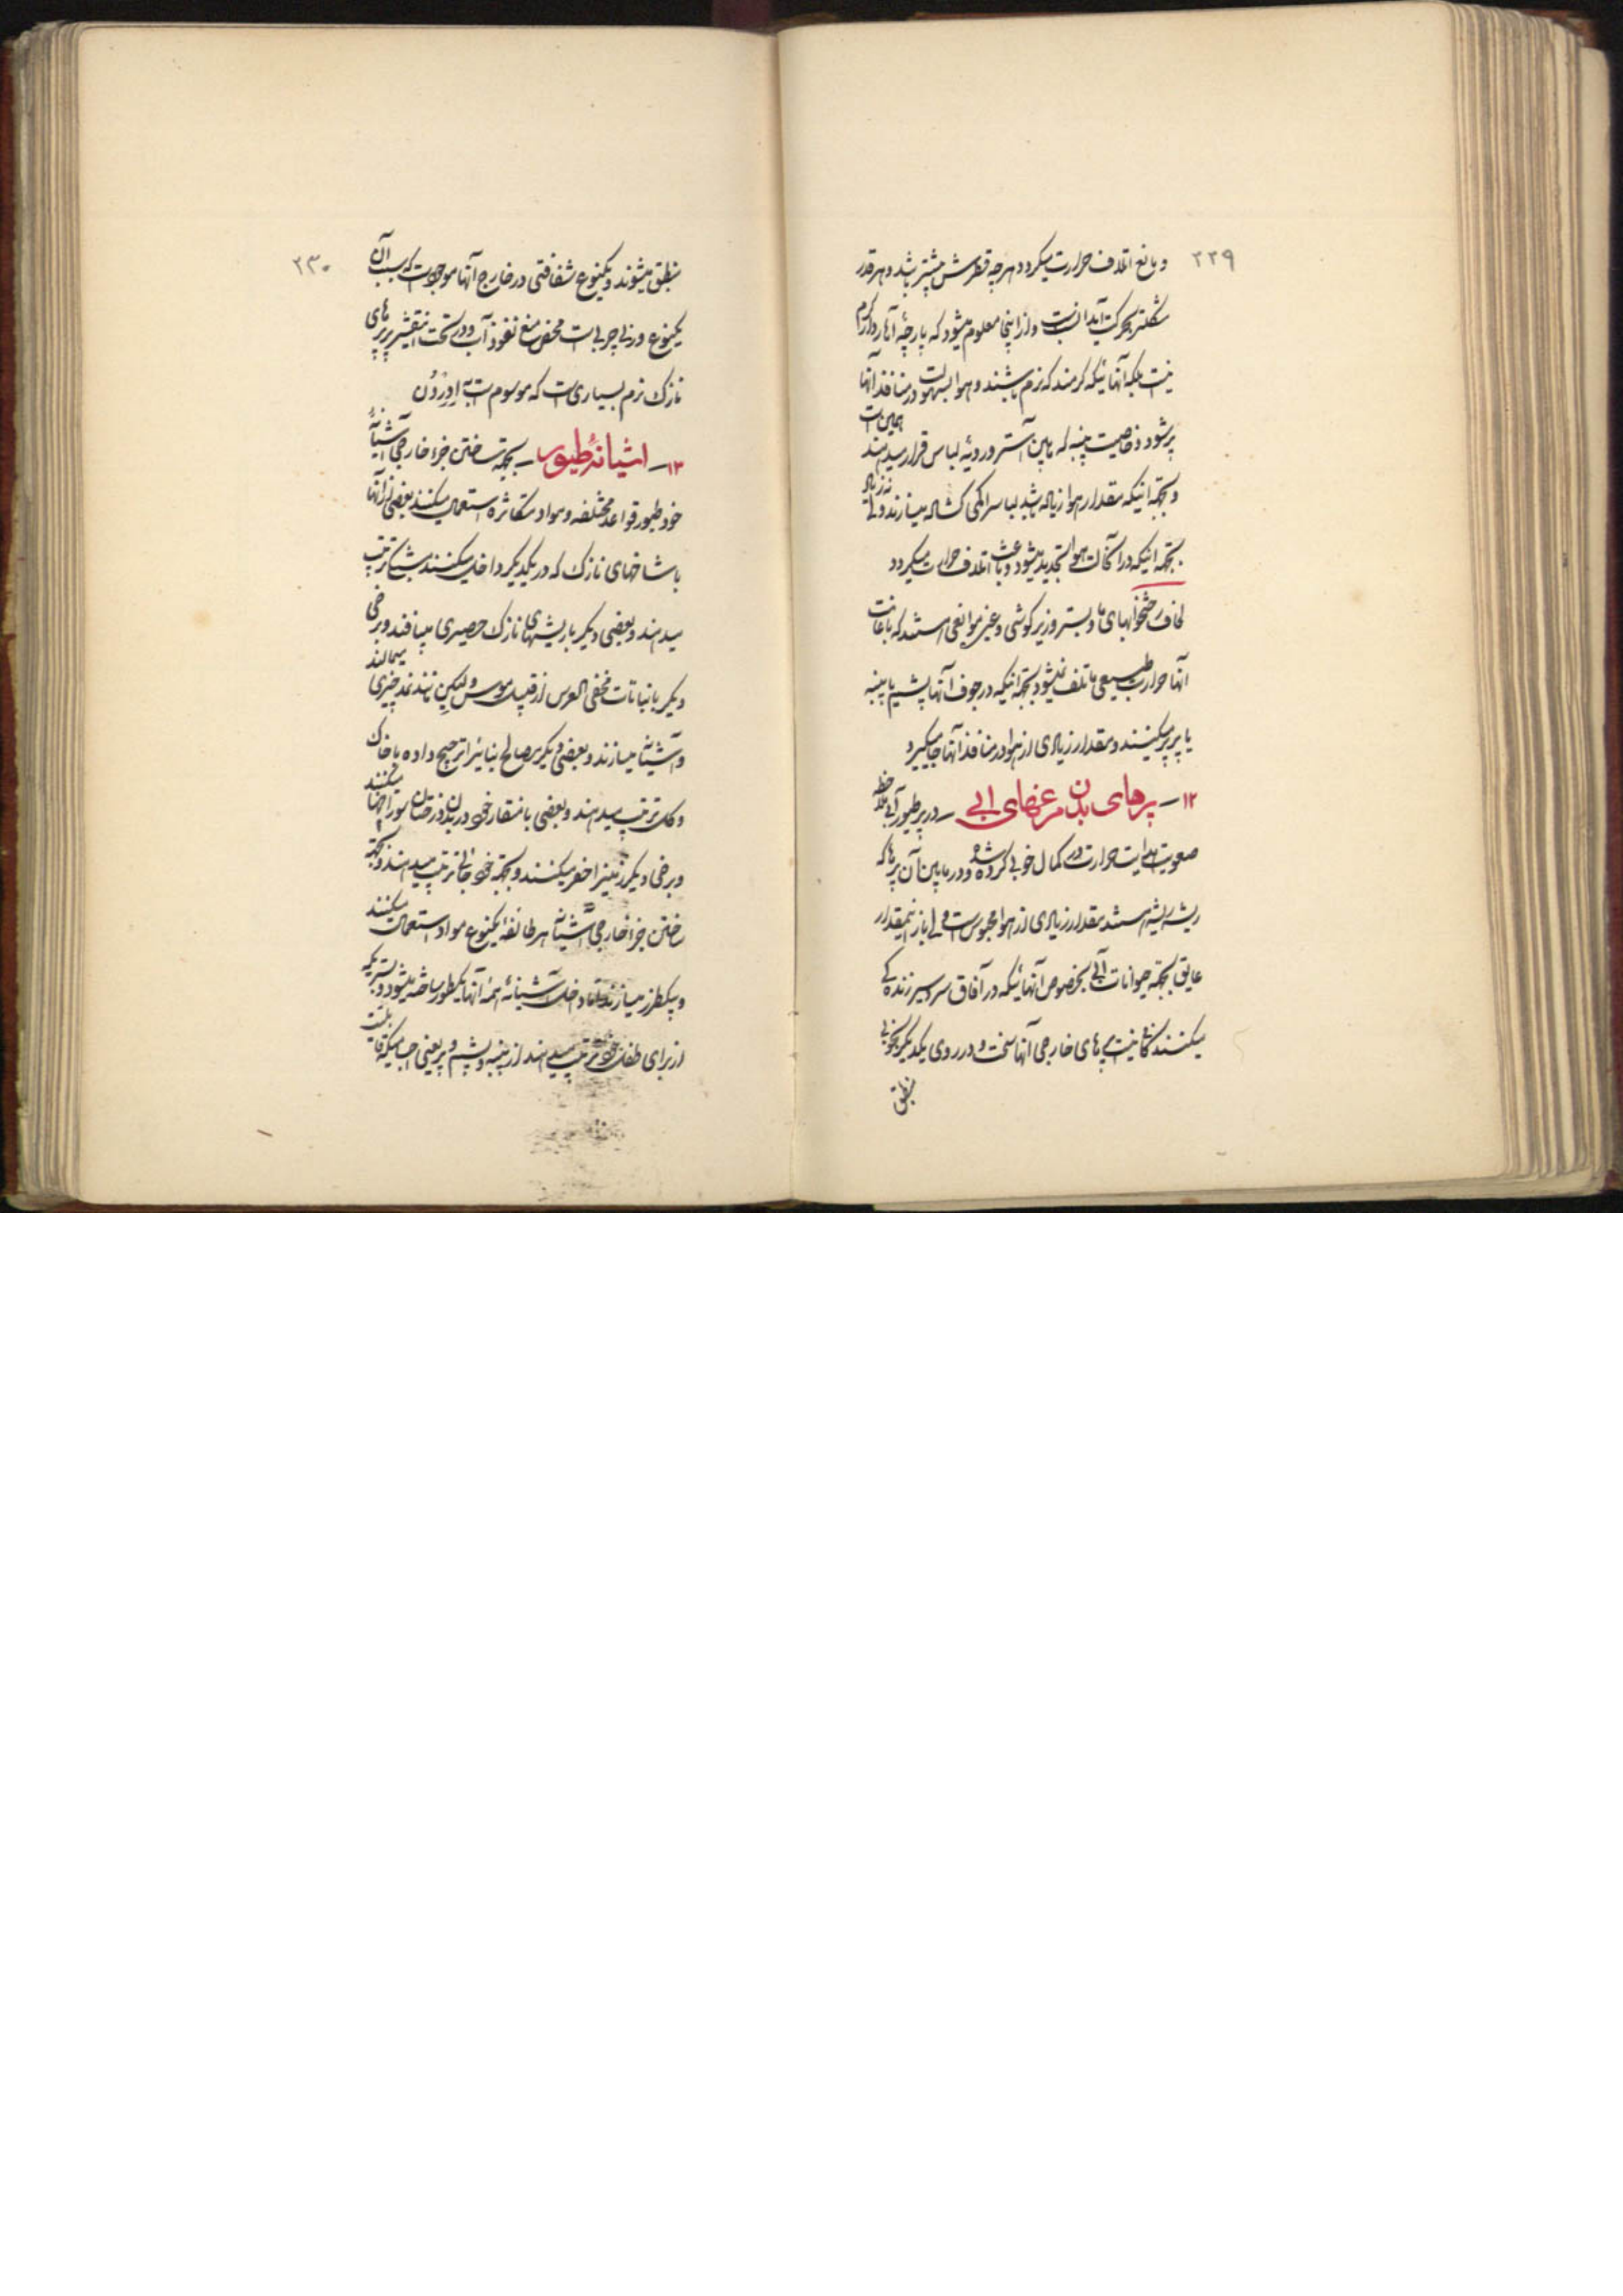 ۲۲۹
و مانع اتلاف حرارت میگردد هرچه قطرش بیشتر باشد و هر قدر
مشکلتر بحرکت آید انسب است و از اینجا معلوم میشود که پارچهٔ آهار دار گرم
نیست بلکه آنهائیکه گرمند که نرم باشند و هوا بسهولت در منافذ آنها
پر شود و خاصیت پنبه که مابین آستر و رویهٔ لباس قرار میدهند همین است
و بجهة اینکه مقدار هوا زیاد باشد لباس را کمی گشاد میسازند ولی نه زیاد
بجهة اینکه در آنحالت هوا تجدید میشود و باعث اتلاف حرارت میگردد
لحاف رختخوابهای ما و بستر و زیر گوشی و غیره موانعی هستند که باعانت
آنها حرارت طبیعی ما تلف نمیشود بجهة اینکه در جوف آنها پشم یا پنبه
یا پر پر میکنند و مقدار زیادی از هوا در منافذ آنها جا میگیرد
۱۲ــ پرهای بدن مرغهای ابی ــ در پر طیور آبی ملاحظه
صعوبت هدایت حرارت در کمال خوبی کرده شده و در مابین آن پرها که
ریشه ریشه هستند مقدار زیادی از هوا محبوس است ولی باز اینمقدار
عایق بجهة حیوانات آبی بخصوص آنهائیکه در آفاق سردسیر زندگی
میکنند کافی نیست پرهای خارجی آنها سخت و در روی یکدیگر بخوبی
منطبق
۲۳۰
منطبق میشوند و یکنوع شفافتی در خارج آنها موجود است که سبب آن
یکنوع وزنی چربی است محض منع نفوذ آب و در تحت این قشر پر پرهای
نازک نرم بسیاری است که موسوم است به اِدِرْدُن
۱۳ــ اشیانهٔ طیور ــ بجهة ساختن جزء خارجی آشیانهٔ
خود طیور قواعد مختلفه و مواد متکاثره استعمال میکنند بعضی از آنها
با شاخهای نازک که در یکدیگر داخل میکنند مشبک ترتیب
میدهند و بعضی دیگر با ریشهای نازک حصیری میبافند و برخی
دیگر با نباتات مخفی العرس از قبیل موس و لیکن نمد چیزی میمالند
و آشیانه میسازند و بعضی دیگر مصالح بنایی را ترجیح داده با خاک
و گل ترتیب میدهند و بعضی با منقار خود در بدن درختان سوراخها میکنند
و برخی دیگر زمین را حفر میکنند و بجهة خود خانه ترتیب میدهند و بجهة
ساختن جزء خارجی آشیانه هر طائفه یکنوع مواد استعمال میکنند
و بیکطرز میسازند اما داخل آشیانهٔ همه آنها یکطور ساخته میشود و بستریکه
از برای طفل خود ترتیب میدهند از پنبه و پشم و پر یعنی اجسامیکه قابلیت